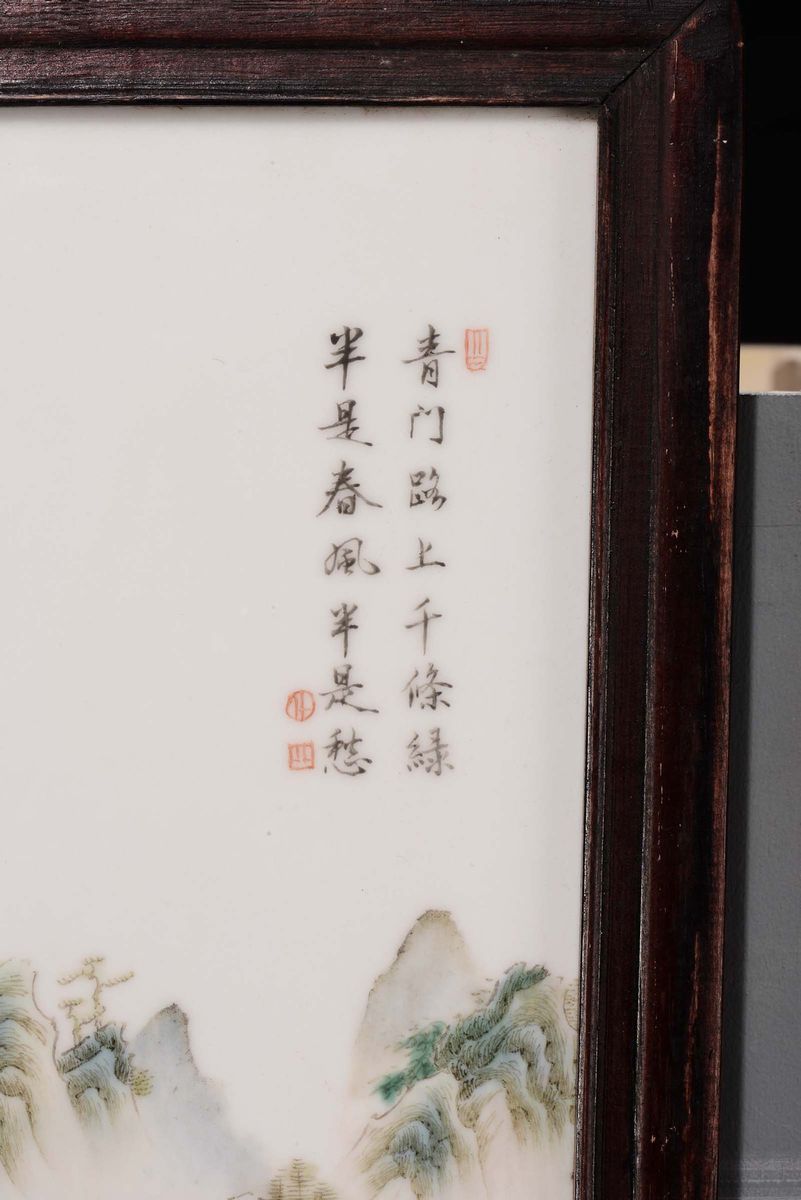 青门路上千條綠
半是春風半是愁